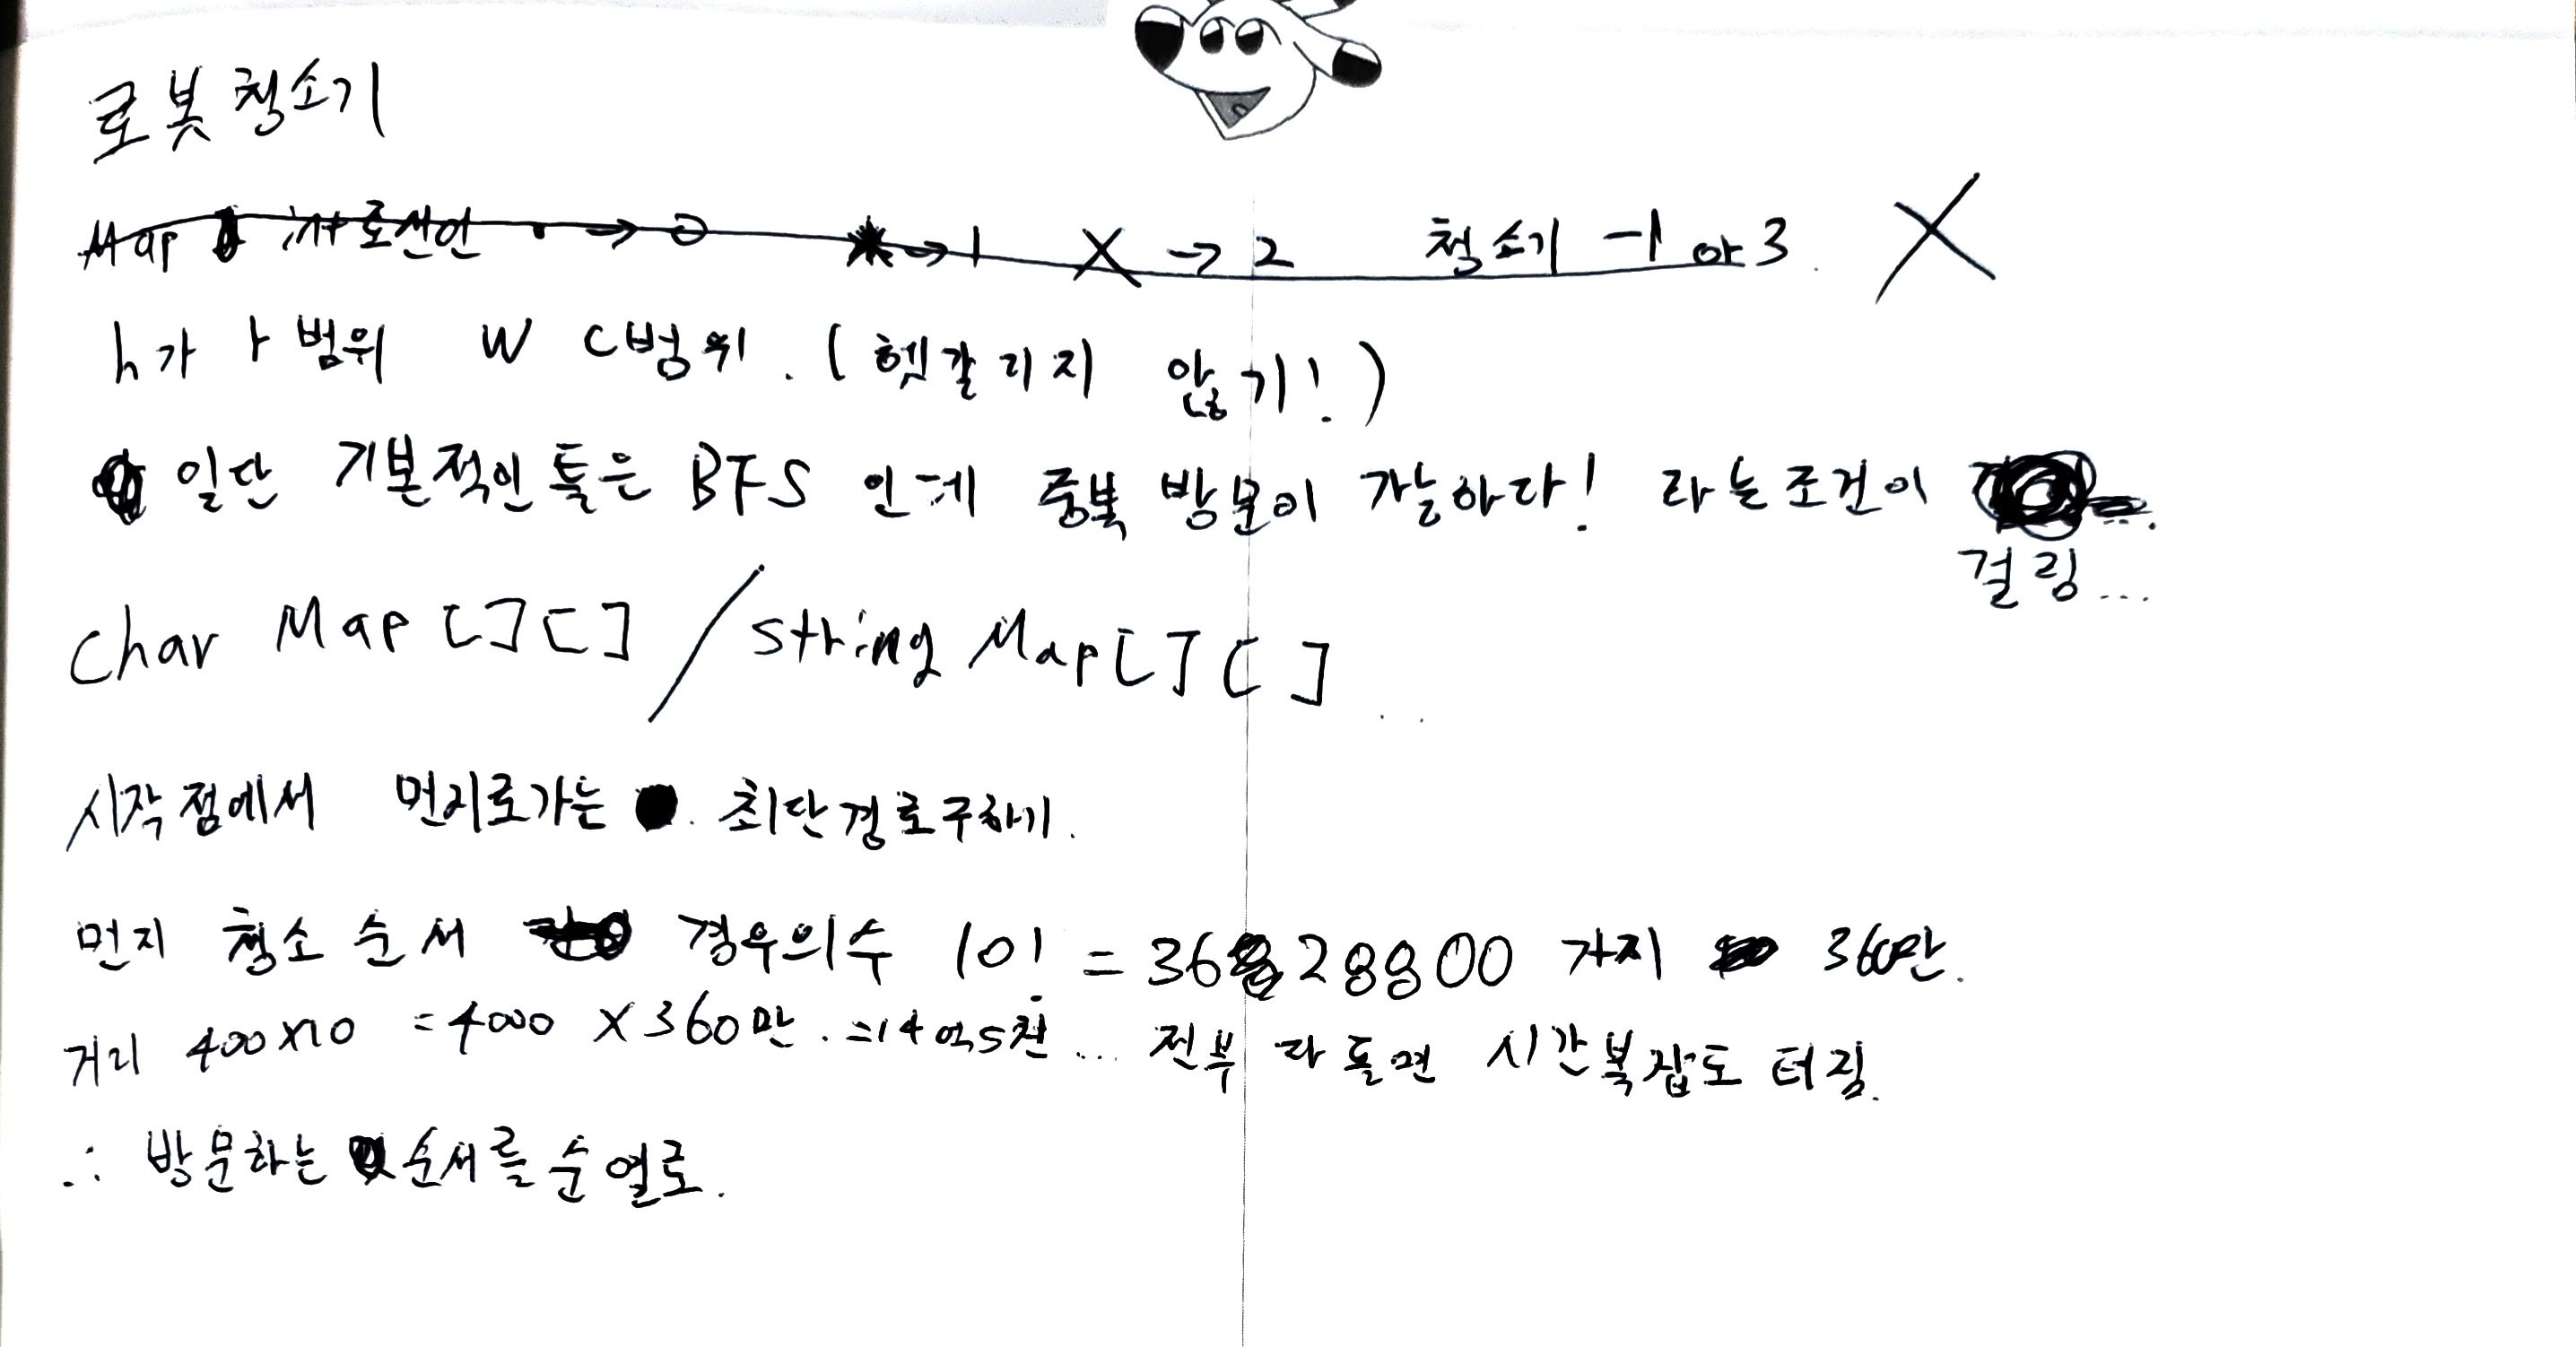 로봇 청소기
Map int로 선언 . → 0 * → 1 X → 2 청소기 -1 or 3. X
h가 r 범위 W C범위. (헷갈리지 않기!)
일단 기본적인 틀은 BFS 인데 중복 방문이 가능하다! 라는 조건이
걸림...
Char Map [][] / string Map[][] ..
시작점에서 먼지로가는 최단경로구하기.
먼지 청소 순서 경우의수 10! = 3628800 가지 360만.
거리 400x10 = 4000 X 360만. =14억5천... 전부 다 돌면 시간복잡도 터짐.
∴ 방문하는 순서를 순열로.